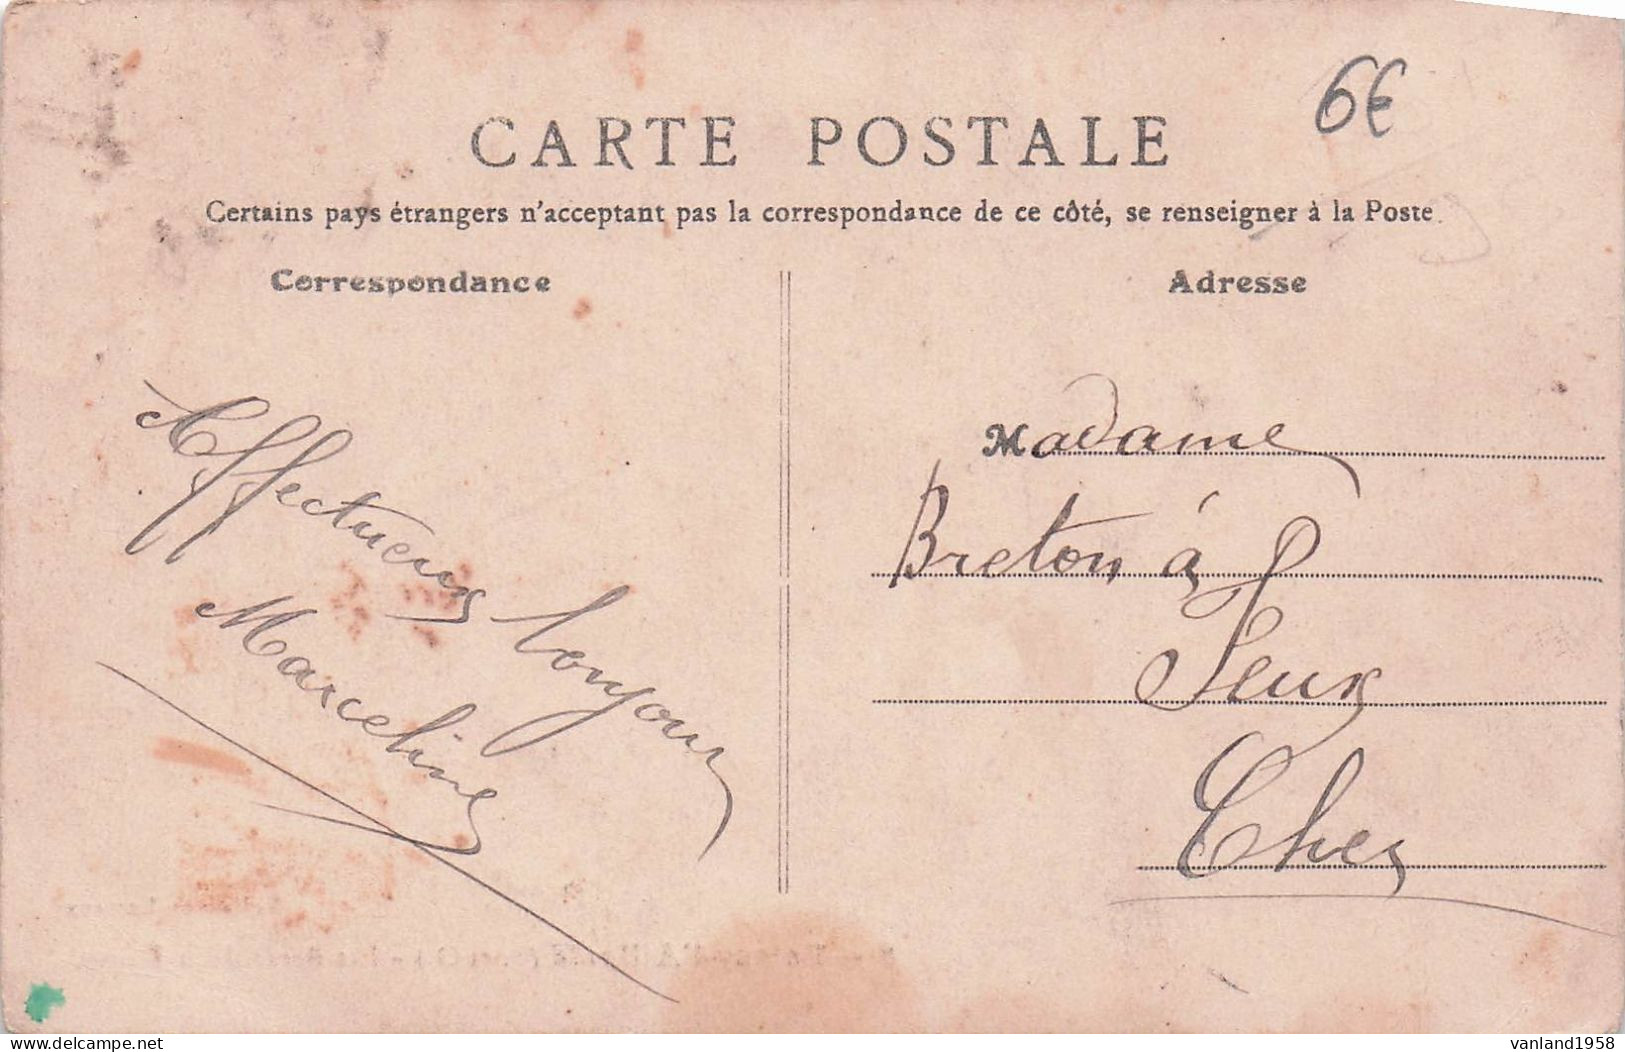 6€
CARTE POSTALE
Certains pays étrangers n'acceptant pas la correspondance de ce côté, se renseigner à la Poste
Correspondance
Affectueux
toujours
Marceline
Adresse
Madame
Breton à
Cher
vanland1958